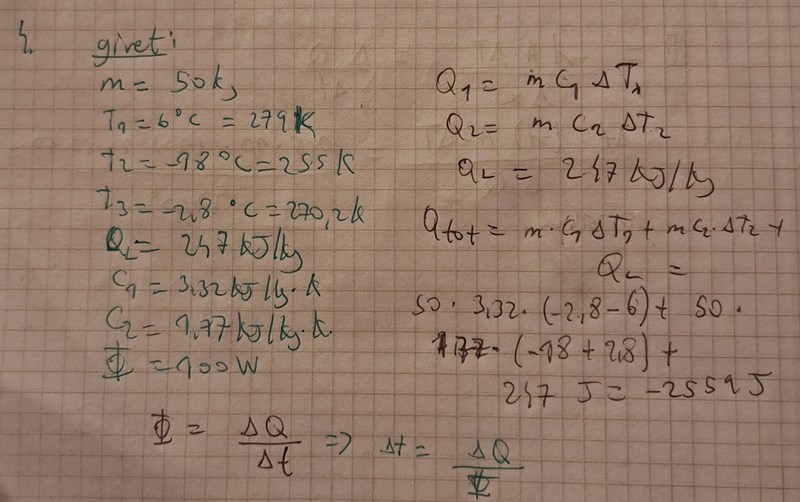 1.
givet:
m = 50 kg
T₁ = 6°C = 279 K
T₂ = -18°C = 255 K
T₃ = -2,8 °C = 270,2 K
Q_L = 247 kJ/kg
C₁ = 3,32 kJ/kg·K
C₂ = 1,77 kJ/kg·K
Φ = 100 W
Q₁ = m C₁ ΔT₁
Q₂ = m C₂ ΔT₂
Q_L = 247 kJ/kg
Q_tot = m·C₁ ΔT₁ + m C₂·ΔT₂ +
Q_L =
50 · 3,32 · (-2,8-6) + 50 ·
1,77 · (-18 + 2,8) +
247 J = -2559 J
Φ = ΔQ / Δt => Δt = ΔQ / Φ